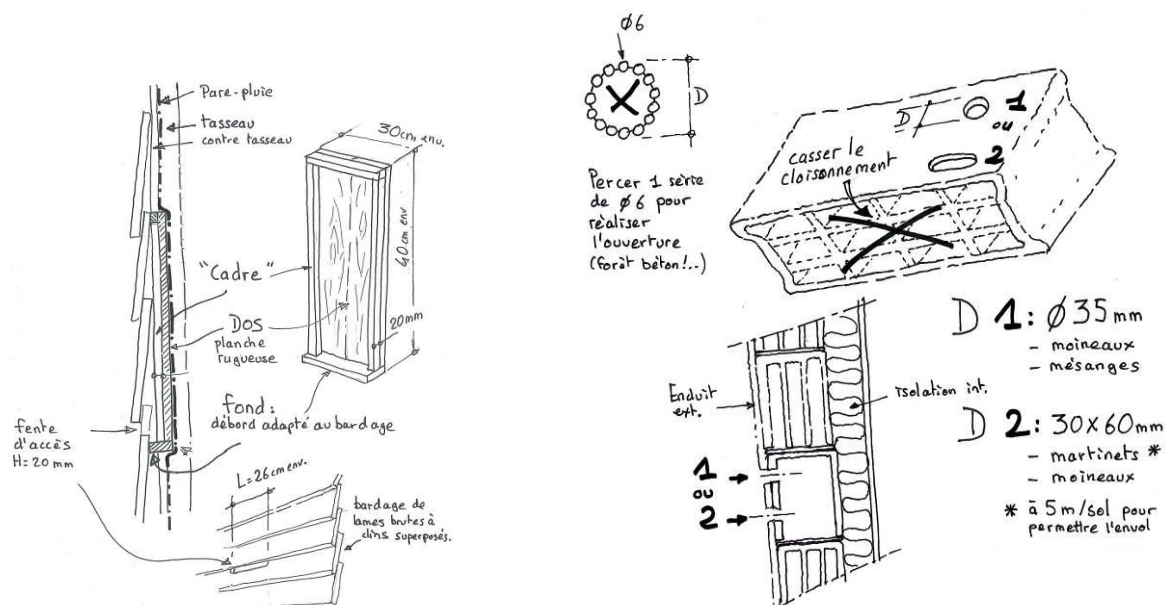 Pare-pluie
tasseau
contre tasseau
"Cadre"
DOS
planche
rugueuse
fond:
débord adapté au bardage
fente
d'accès
H=20 mm
30cm env.
40cm env
20mm
L=26cm env.
bardage de
lames brutes à
clins superposés.
Ø6
D
Percer 1 série
de Ø6 pour
réaliser
l'ouverture
(forêt béton!..)
casser le
cloisonnement
D
1
ou
2
Enduit
ext.
isolation int.
1
ou
2
D 1: Ø35mm
- moineaux
- mésanges
D 2: 30x60mm
- martinets *
- moineaux
* à 5m/sol pour
permettre l'envol